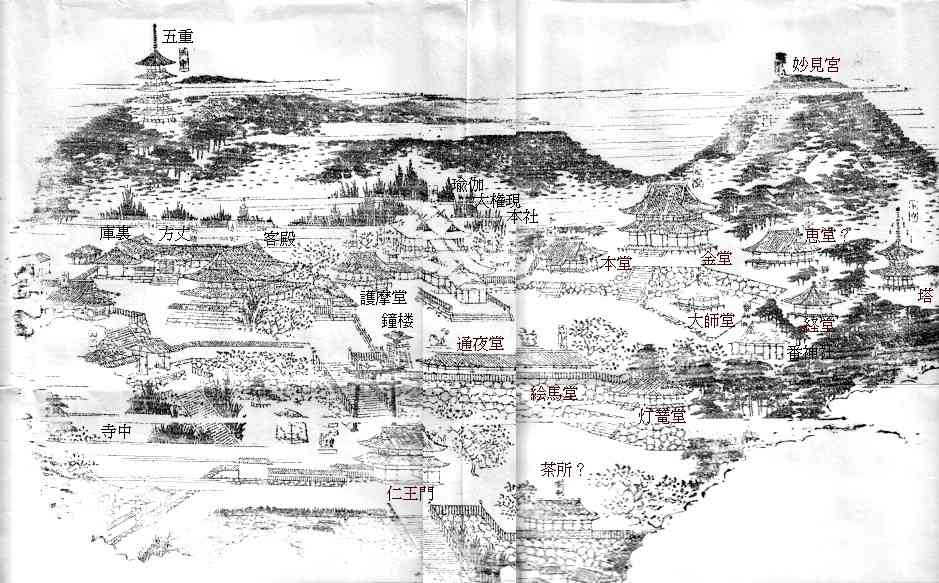 五重
妙見宮
瑜伽
大権現
本社
庫裏
方丈
客殿
恵堂?
本堂
金堂
塔
護摩堂
大師堂
経堂
鐘楼
通夜堂
番神社
絵馬堂
灯篭堂
寺中
茶所?
仁王門